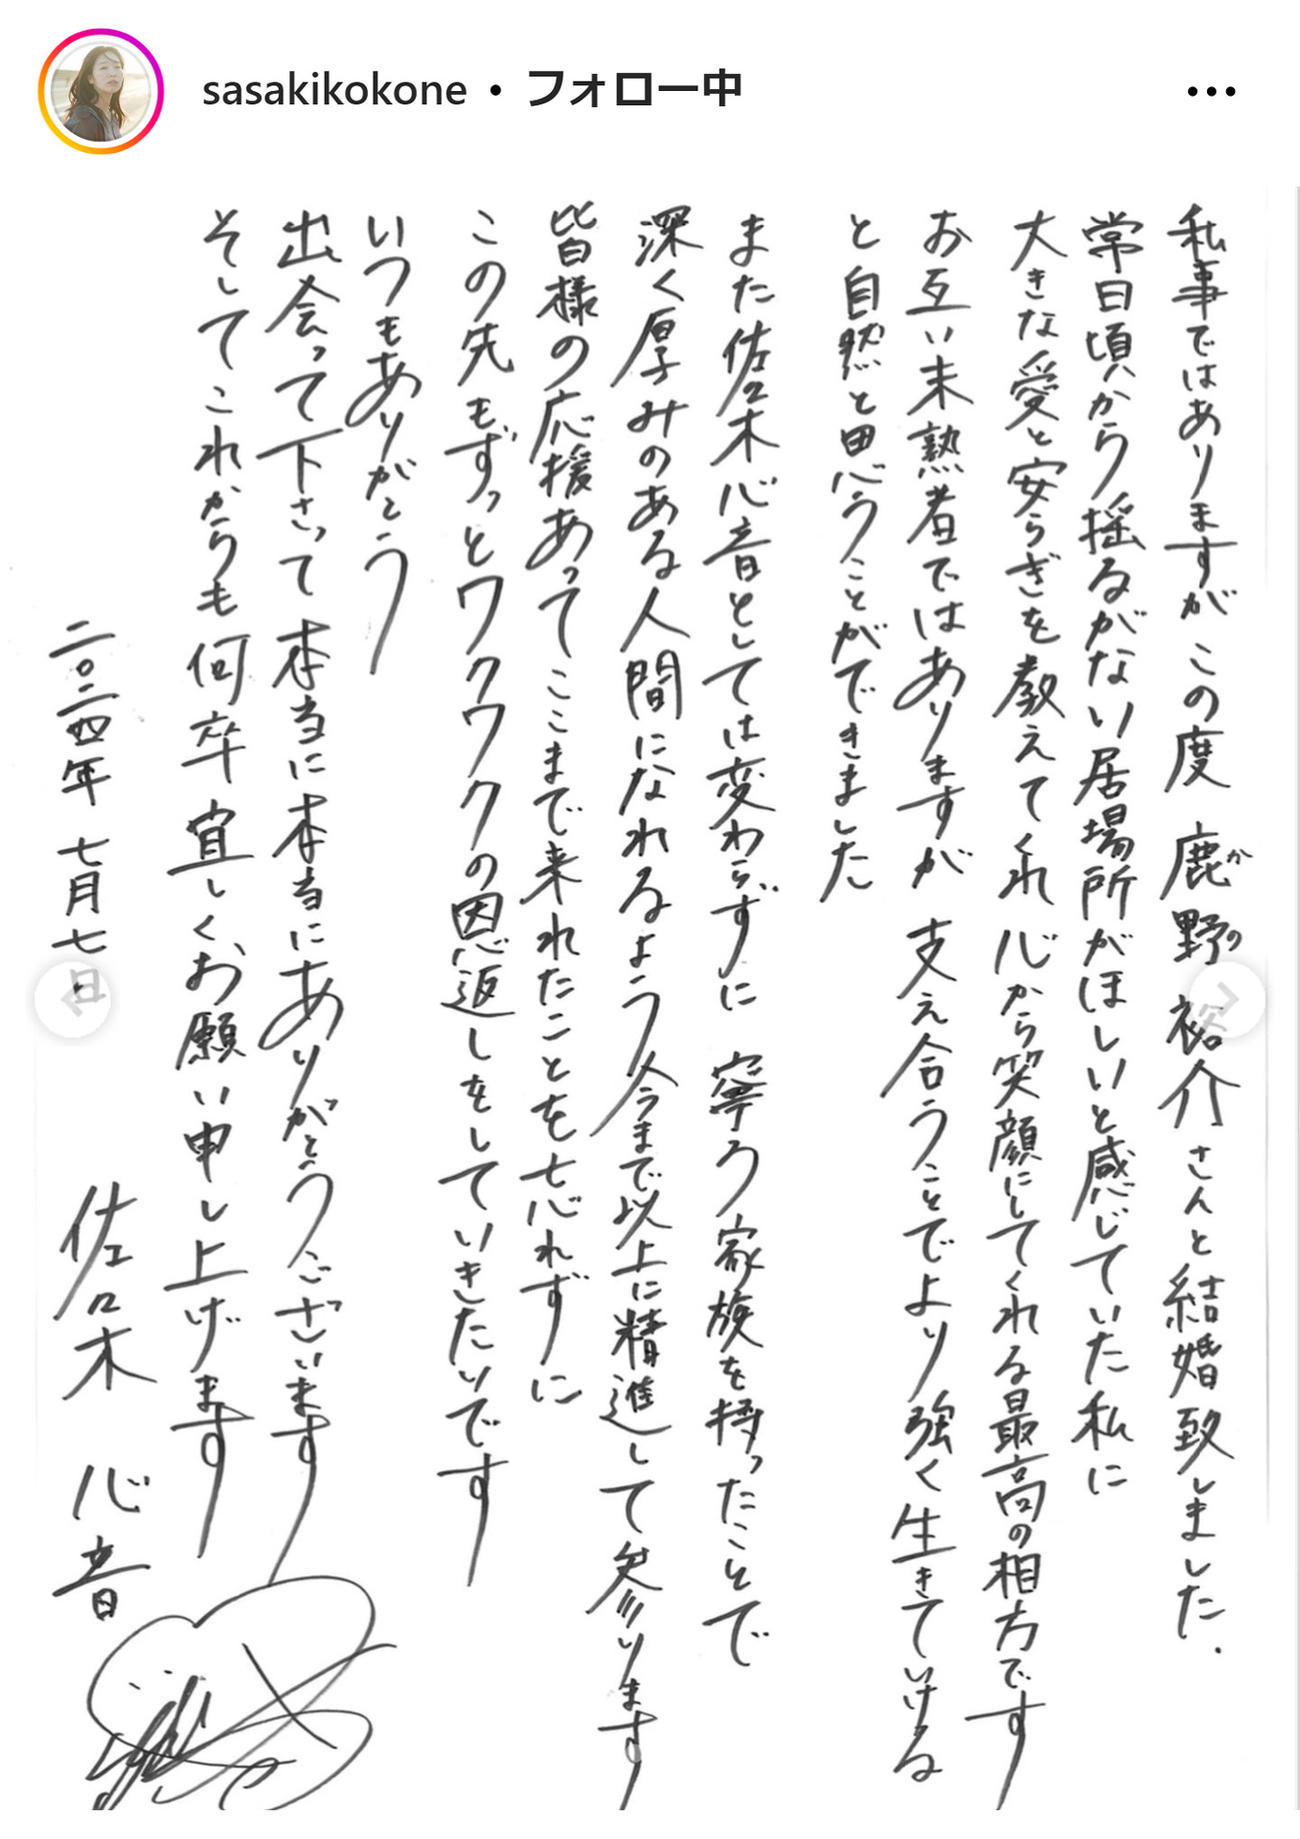 sasakikokone • フォロー中
私事ではありますが この度 鹿野 裕介さんと結婚致しました.
かの
常日頃から揺るがない居場所がほしいと感じていた私に
大きな愛と安らぎを教えてくれ 心から笑顔にしてくれる最高の相方です
お互い未熟者ではありますが 支え合うことでより強く生きていける
と自然と思うことができました
また佐々木心音としては変わらずに 寧ろ家族を持ったことで
深く厚みのある人間になれるよう今まで以上に精進して参ります
皆様の応援あってここまで来れたことを忘れずに
この先もずっとワクワクの恩返しをしていきたいです
いつもありがとう
出会って下さって本当に本当にありがとうございます
そしてこれからも何卒宜しくお願い申し上げます
二〇二四年 七月七日
佐々木 心音